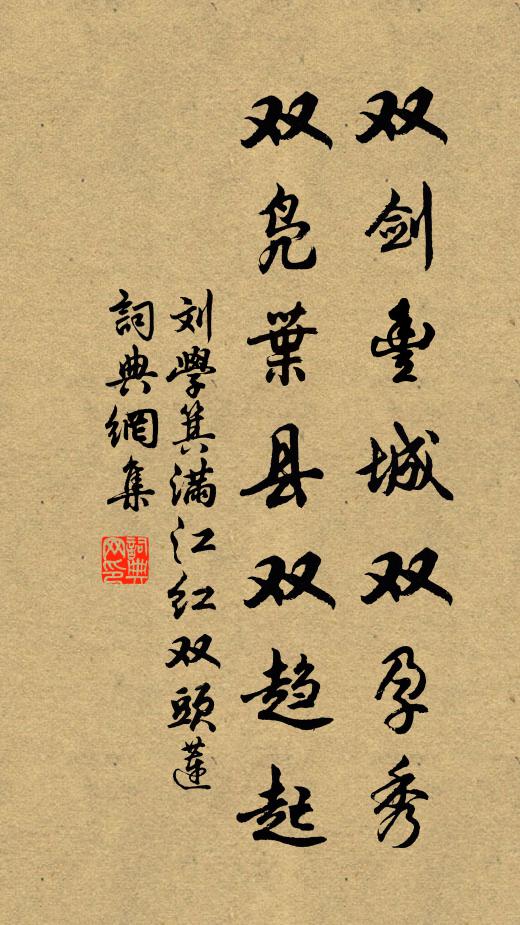 双剑豊城双孕秀
双凫葉县双趋起
刘学箕满江红双頭蓮
詞典網集
詞典网印